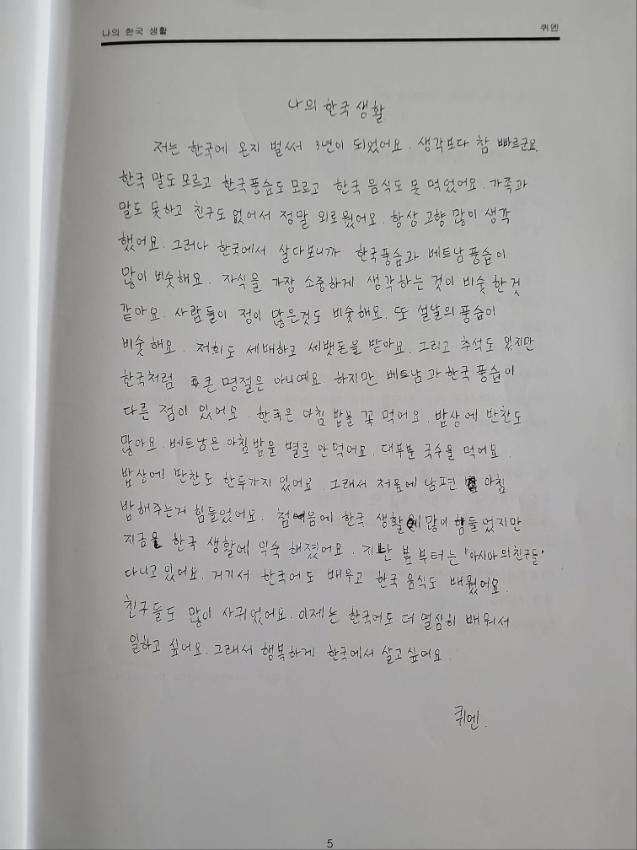 나의 한국 생활
퀴엔
나의 한국 생활
저는 한국에 온지 벌써 3년이 되었어요. 생각보다 참 빠르군요.
한국 말도 모르고 한국풍습도 모르고 한국 음식도 못 먹었어요. 가족과
말도 못하고 친구도 없어서 정말 외로웠어요. 항상 고향 많이 생각
했어요. 그러나 한국에서 살다보니까 한국풍습과 베트남풍습이
많이 비슷해요. 자식을 가장 소중하게 생각하는 것이 비슷 한 것
같아요. 사람들이 정이 많은것도 비슷해요. 또 설날의 풍습이
비슷해요. 저희도 세배하고 세뱃돈을 받아요. 그리고 추석도 있지만
한국처럼 큰 명절은 아니예요. 하지만 베트남과 한국 풍습이
다른 점이 있어요. 한국은 아침 밥을 꼭 먹어요. 밥상에 반찬도
많아요. 베트남은 아침 밥을 별로 안 먹어요. 대부분 국수을 먹어요.
밥상에 반찬도 한두가지 있어요. 그래서 처음에 남편 아침
밥 해주는거 힘들었어요. 처음에 한국 생활에 많이 힘들었지만
지금은 한국 생활에 익숙 해졌어요. 지난 봄부터는 '아시아의친구들'
다니고 있어요. 거기서 한국어도 배우고 한국 음식도 배웠어요.
친구들도 많이 사귀었어요. 이제는 한국어도 더 열심히 배워서
일하고 싶어요. 그래서 행복하게 한국에서 살고 싶어요.
퀴엔.
5